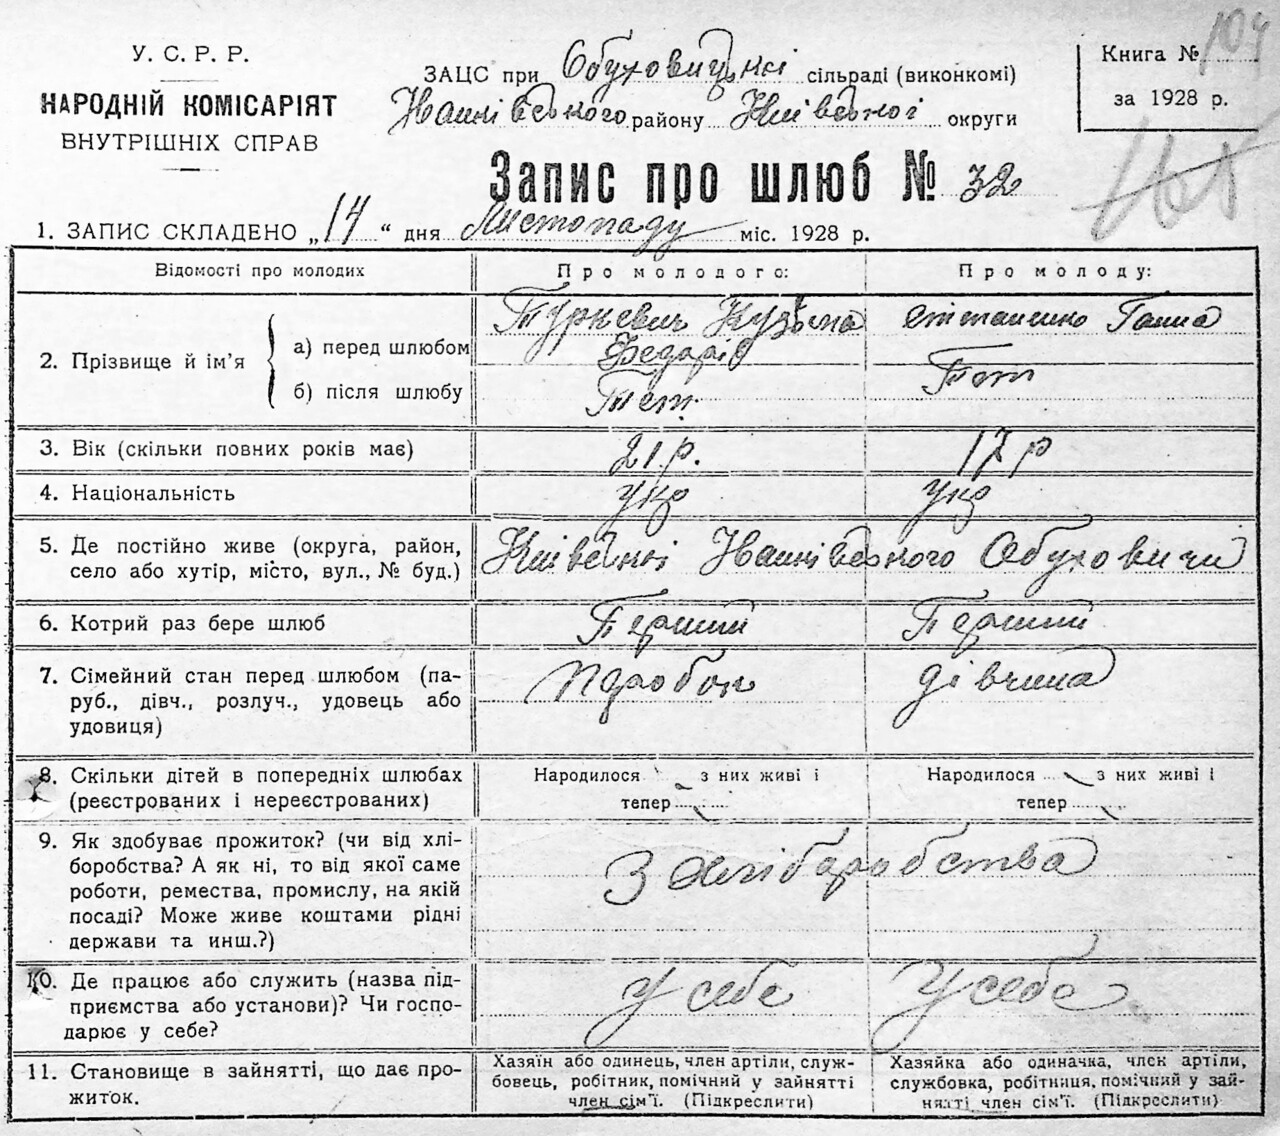 У. С. Р. Р.
НАРОДНІЙ КОМІСАРІЯТ
ВНУТРІШНІХ СПРАВ
ЗАЦС при Обуховицькі сільраді (виконкомі)
Іванківського району Київської округи
Книга № 104
за 1928 р.
Запис про шлюб № 32
1. ЗАПИС СКЛАДЕНО „14“ дня Листопаду міс. 1928 р.
Відомості про молодих
Про молодого:
Про молоду:
2. Прізвище й ім’я
а) перед шлюбом
Туркевич Кузьма
Федарів
Степаненко Ганна
б) після шлюбу
Теж
Теж
3. Вік (скільки повних років має)
21.р.
17 р
4. Національність
Укр
Укр
5. Де постійно живе (округа, район,
село або хутір, місто, вул., № буд.)
Київській Іванківського Обуховичи
6. Котрий раз бере шлюб
Перший
Перший
7. Сімейний стан перед шлюбом (па-
руб., дівч., розлуч., удовець або
удовиця)
паробок
дівчина
8. Скільки дітей в попередніх шлюбах
(реєстрованих і нереєстрованих)
Народилося з них живі і
тепер
Народилося з них живі і
тепер
9. Як здобуває прожиток? (чи від хлі-
боробства? А як ні, то від якої саме
роботи, ремества, промислу, на якій
посаді? Може живе коштами рідні
держави та инш.?)
З хлібаробства
10. Де працює або служить (назва під-
приємства або установи)? Чи госпо-
дарює у себе?
у себе
у себе
11. Становище в зайнятті, що дає про-
житок.
Хазяїн або одинець, член артілі, служ-
бовець, робітник, помічний у зайнятті
член сім’ї. (Підкреслити)
Хазяйка або одиначка, член артілі,
службовка, робітниця, помічний у зай-
нятті член сім’ї. (Підкреслити)